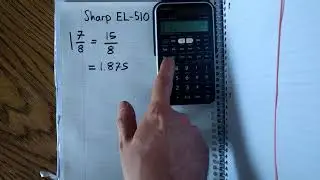 Sharp EL-510
1 7/8 = 15/8
= 1.875